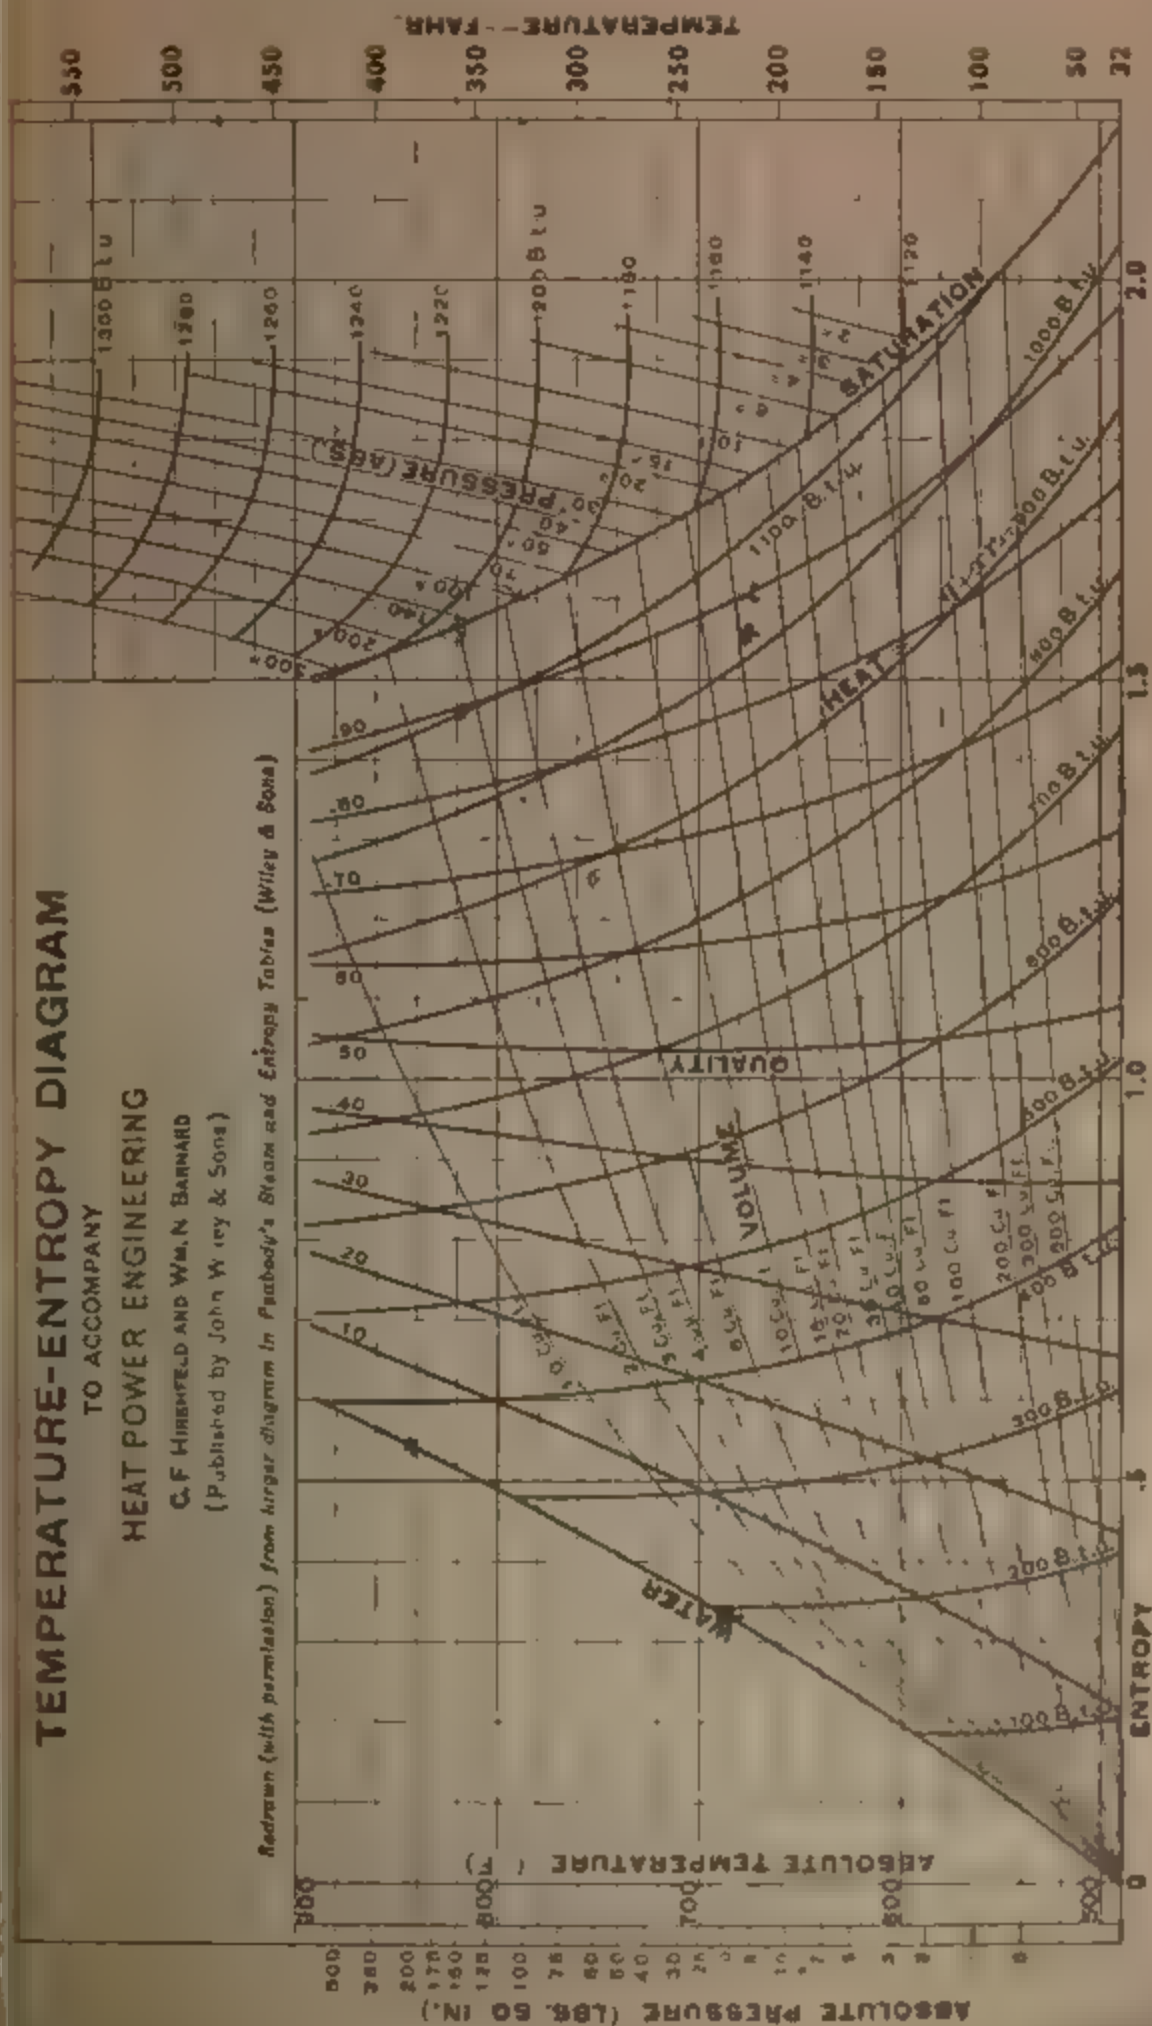 TEMPERATURE-ENTROPY DIAGRAM
TO ACCOMPANY
HEAT POWER ENGINEERING
C.F HIRSHFELD AND WM. N BARNARD
(Published by John Wiley & Sons)
Redrawn (with permission) from larger diagram in Peabody's Steam and Entropy Tables (Wiley & Sons)
TEMPERATURE--FAHR.
550
500
450
400
350
300
250
200
150
100
50
32
1300 B t u
1280
1260
1240
1220
1200 B t u
1180
1160
1140
1120
PRESSURE (ABS.)
300#
200#
140
100#
70
50
40
30
20
10
SATURATION
1100 B.t.u
1000 B.t.u
900 B.t.u.
800 B.t.u
700 B.t.u
600 B.t.u.
500 B.t.u
400 B.t.u
300 B.t.u
200 B.t.u
100 B.t.u
HEAT
.90
.80
.70
.60
.50
.40
.30
.20
.10
QUALITY
VOLUME
2 Cu Ft
3 Cu Ft
4 Cu Ft
6 Cu Ft
10 Cu Ft
15 Cu Ft
20 Cu Ft
30 Cu Ft
40 Cu F
60 Cu Ft
100 Cu Ft
200 Cu F
300 Cu Ft
WATER
ABSOLUTE TEMPERATURE (T)
900
800
700
600
500
ABSOLUTE PRESSURE (LBS. SQ IN.)
200
175
150
125
100
75
60
50
40
30
ENTROPY
0
.5
1.0
1.5
2.0